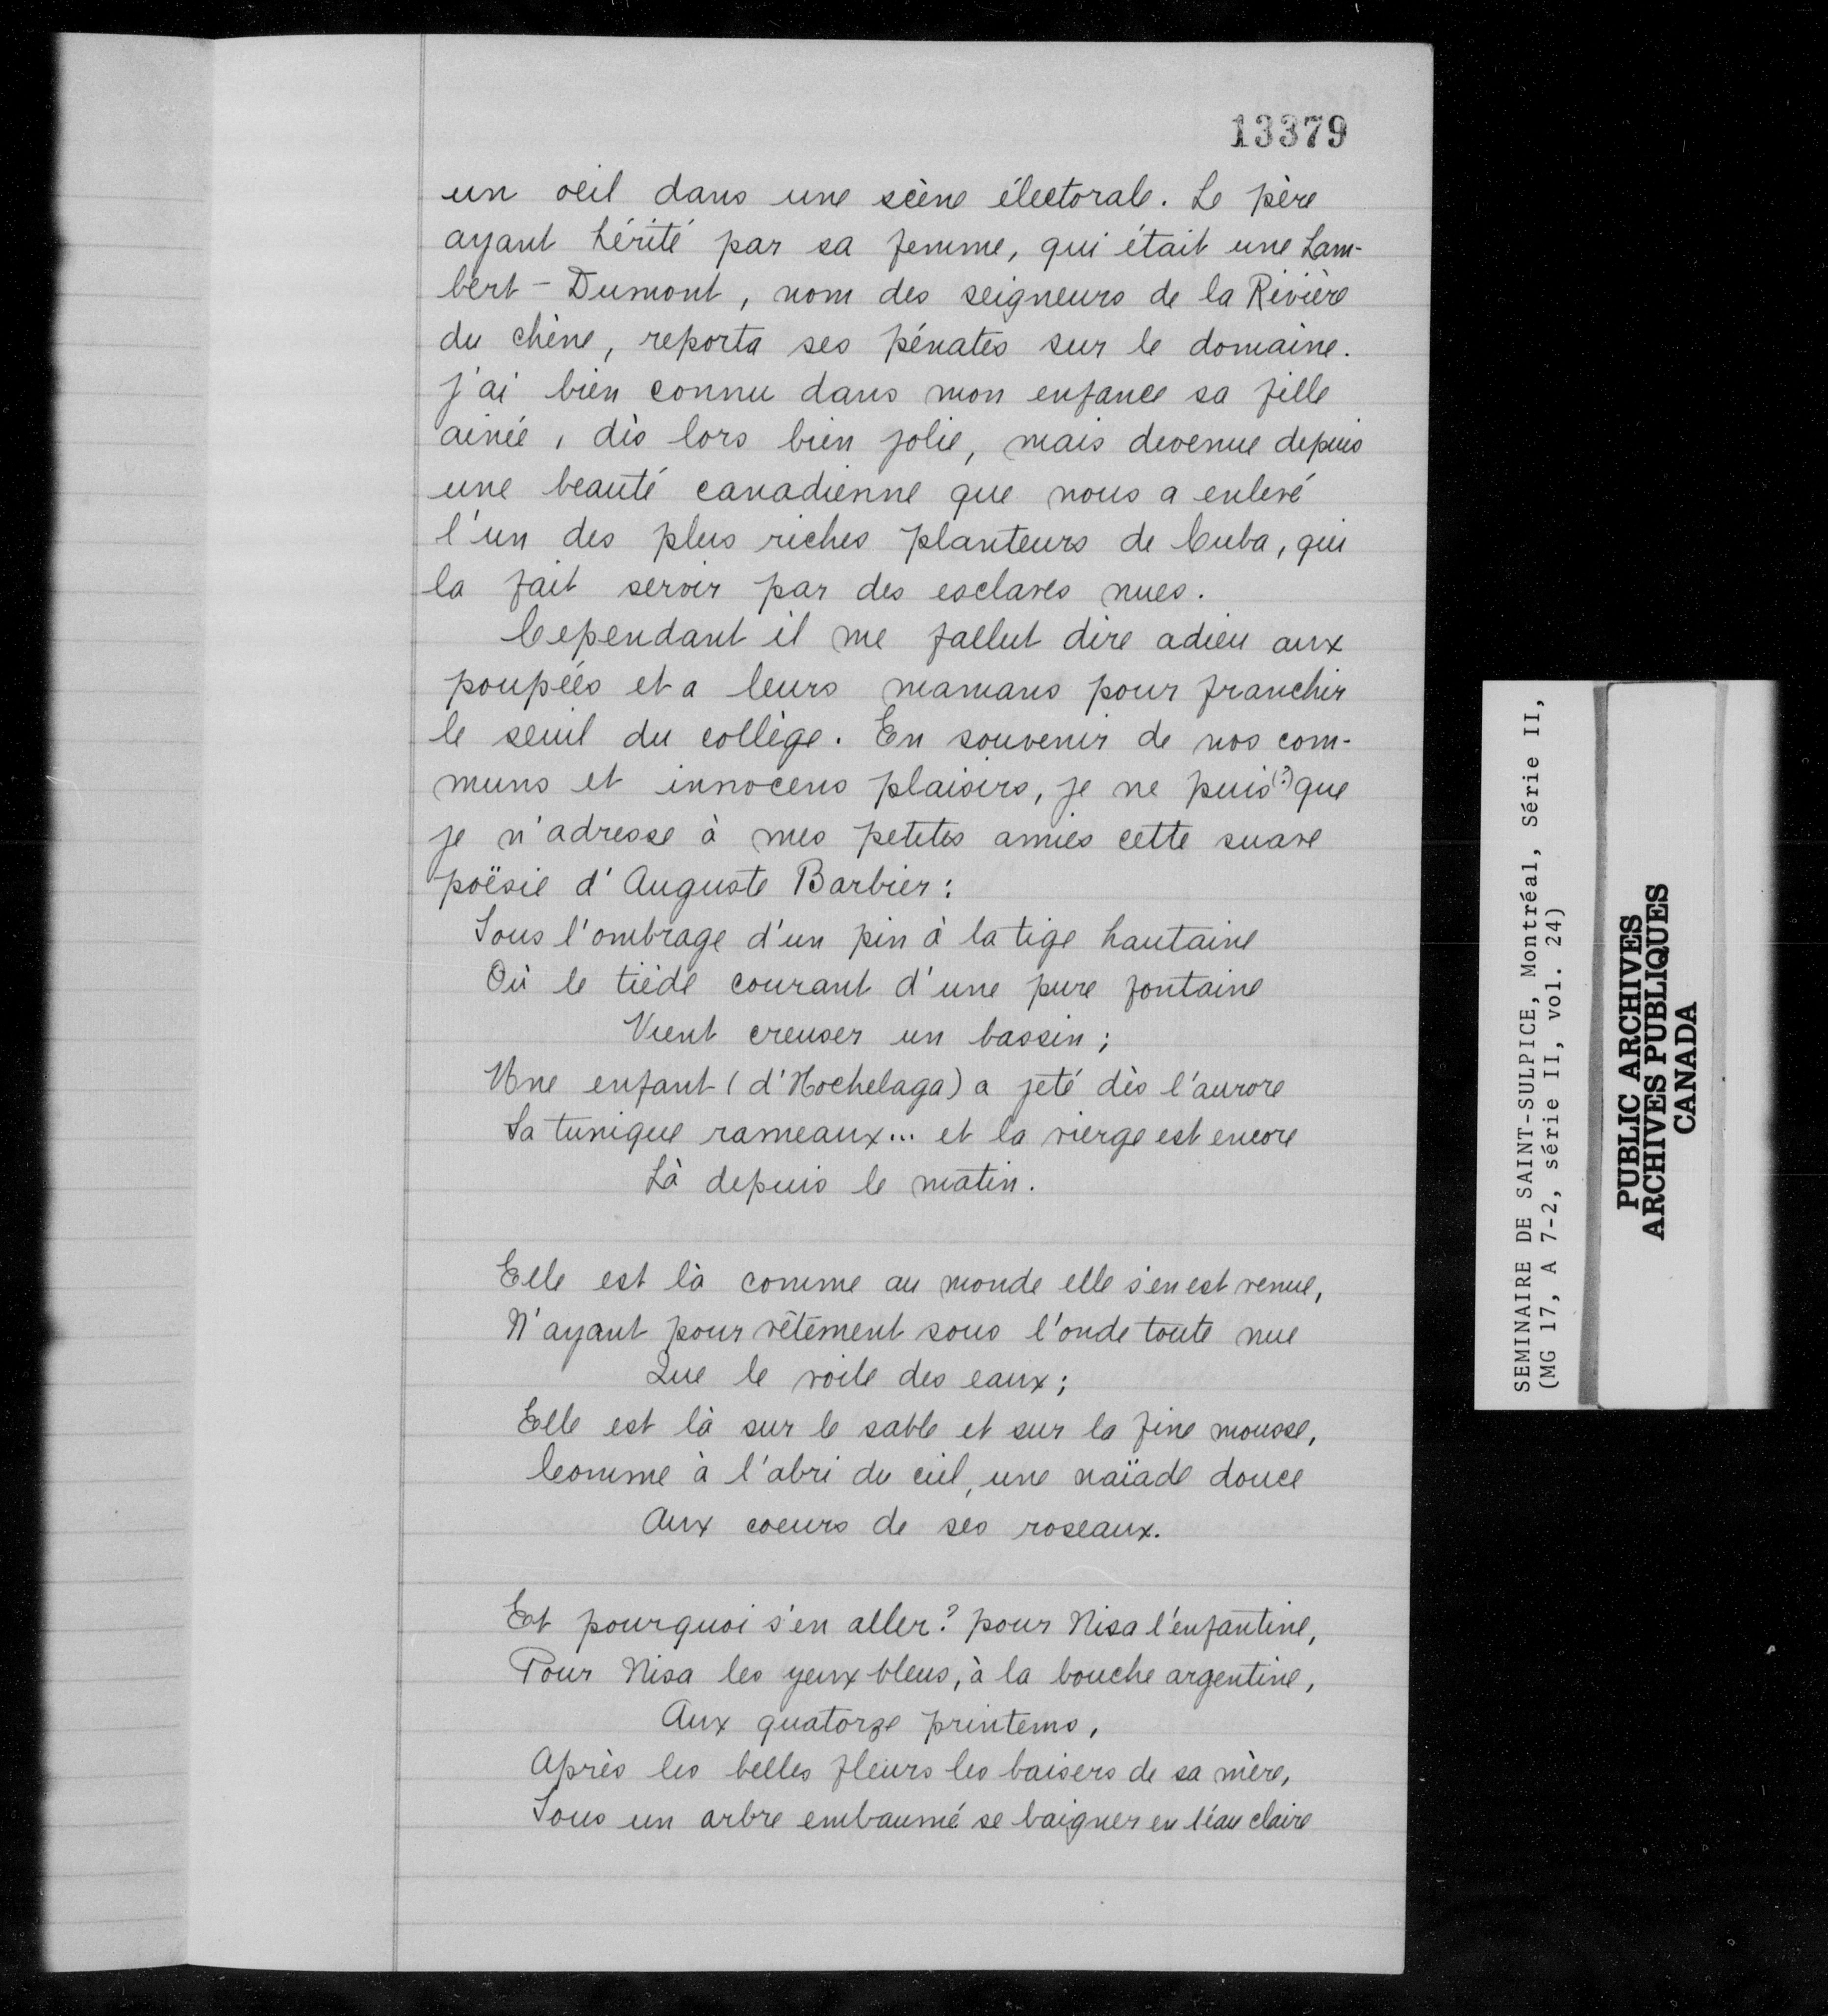 13379
un oeil dans une scène électorale. Le père
ayant hérité par sa femme, qui était une Lam-
bert - Dumont, nom des seigneurs de la Rivière
du chêne, reporta ses pénates sur le domaine.
J'ai bien connu dans mon enfance sa fille
ainée, dès lors bien jolie, mais devenue depuis
une beauté canadienne que nous a enlevé
l'un des plus riches planteurs de Cuba, qui
la fait servir par des esclaves nues.
Cependant il me fallut dire adieu aux
poupées et a leurs mamans pour franchir
le seuil du collège. En souvenir de nos com-
muns et innocens plaisirs, je ne puis (?) que
je n'adresse à mes petites amies cette suave
poësie d'Auguste Barbier:
Sous l'ombrage d'un pin à la tige hautaine
Où le tiède courant d'une pure fontaine
Vient creuser un bassin;
Une enfant (d'Hochelaga) a jeté dès l'aurore
Sa tunique rameaux... et la vierge est encore
Là depuis le matin.
Elle est là comme au monde elle s'en est venue,
N'ayant pour vêtement sous l'onde toute nue
Que le voile des eaux;
Elle est là sur le sable et sur la fine mousse,
Comme à l'abri du ciel, une naïade douce
Aux coeurs de ses roseaux.
Et pourquoi s'en aller? pour Nisa l'enfantine,
Pour Nisa les yeux bleus, à la bouche argentine,
Aux quatorze printems,
Après les belles fleurs les baisers de sa mère,
Sous un arbre embaumé se baigner en l'eau claire
SEMINAIRE DE SAINT-SULPICE, Montréal, Série II,
(MG 17, A 7-2, série II, vol. 24)
PUBLIC ARCHIVES
ARCHIVES PUBLIQUES
CANADA